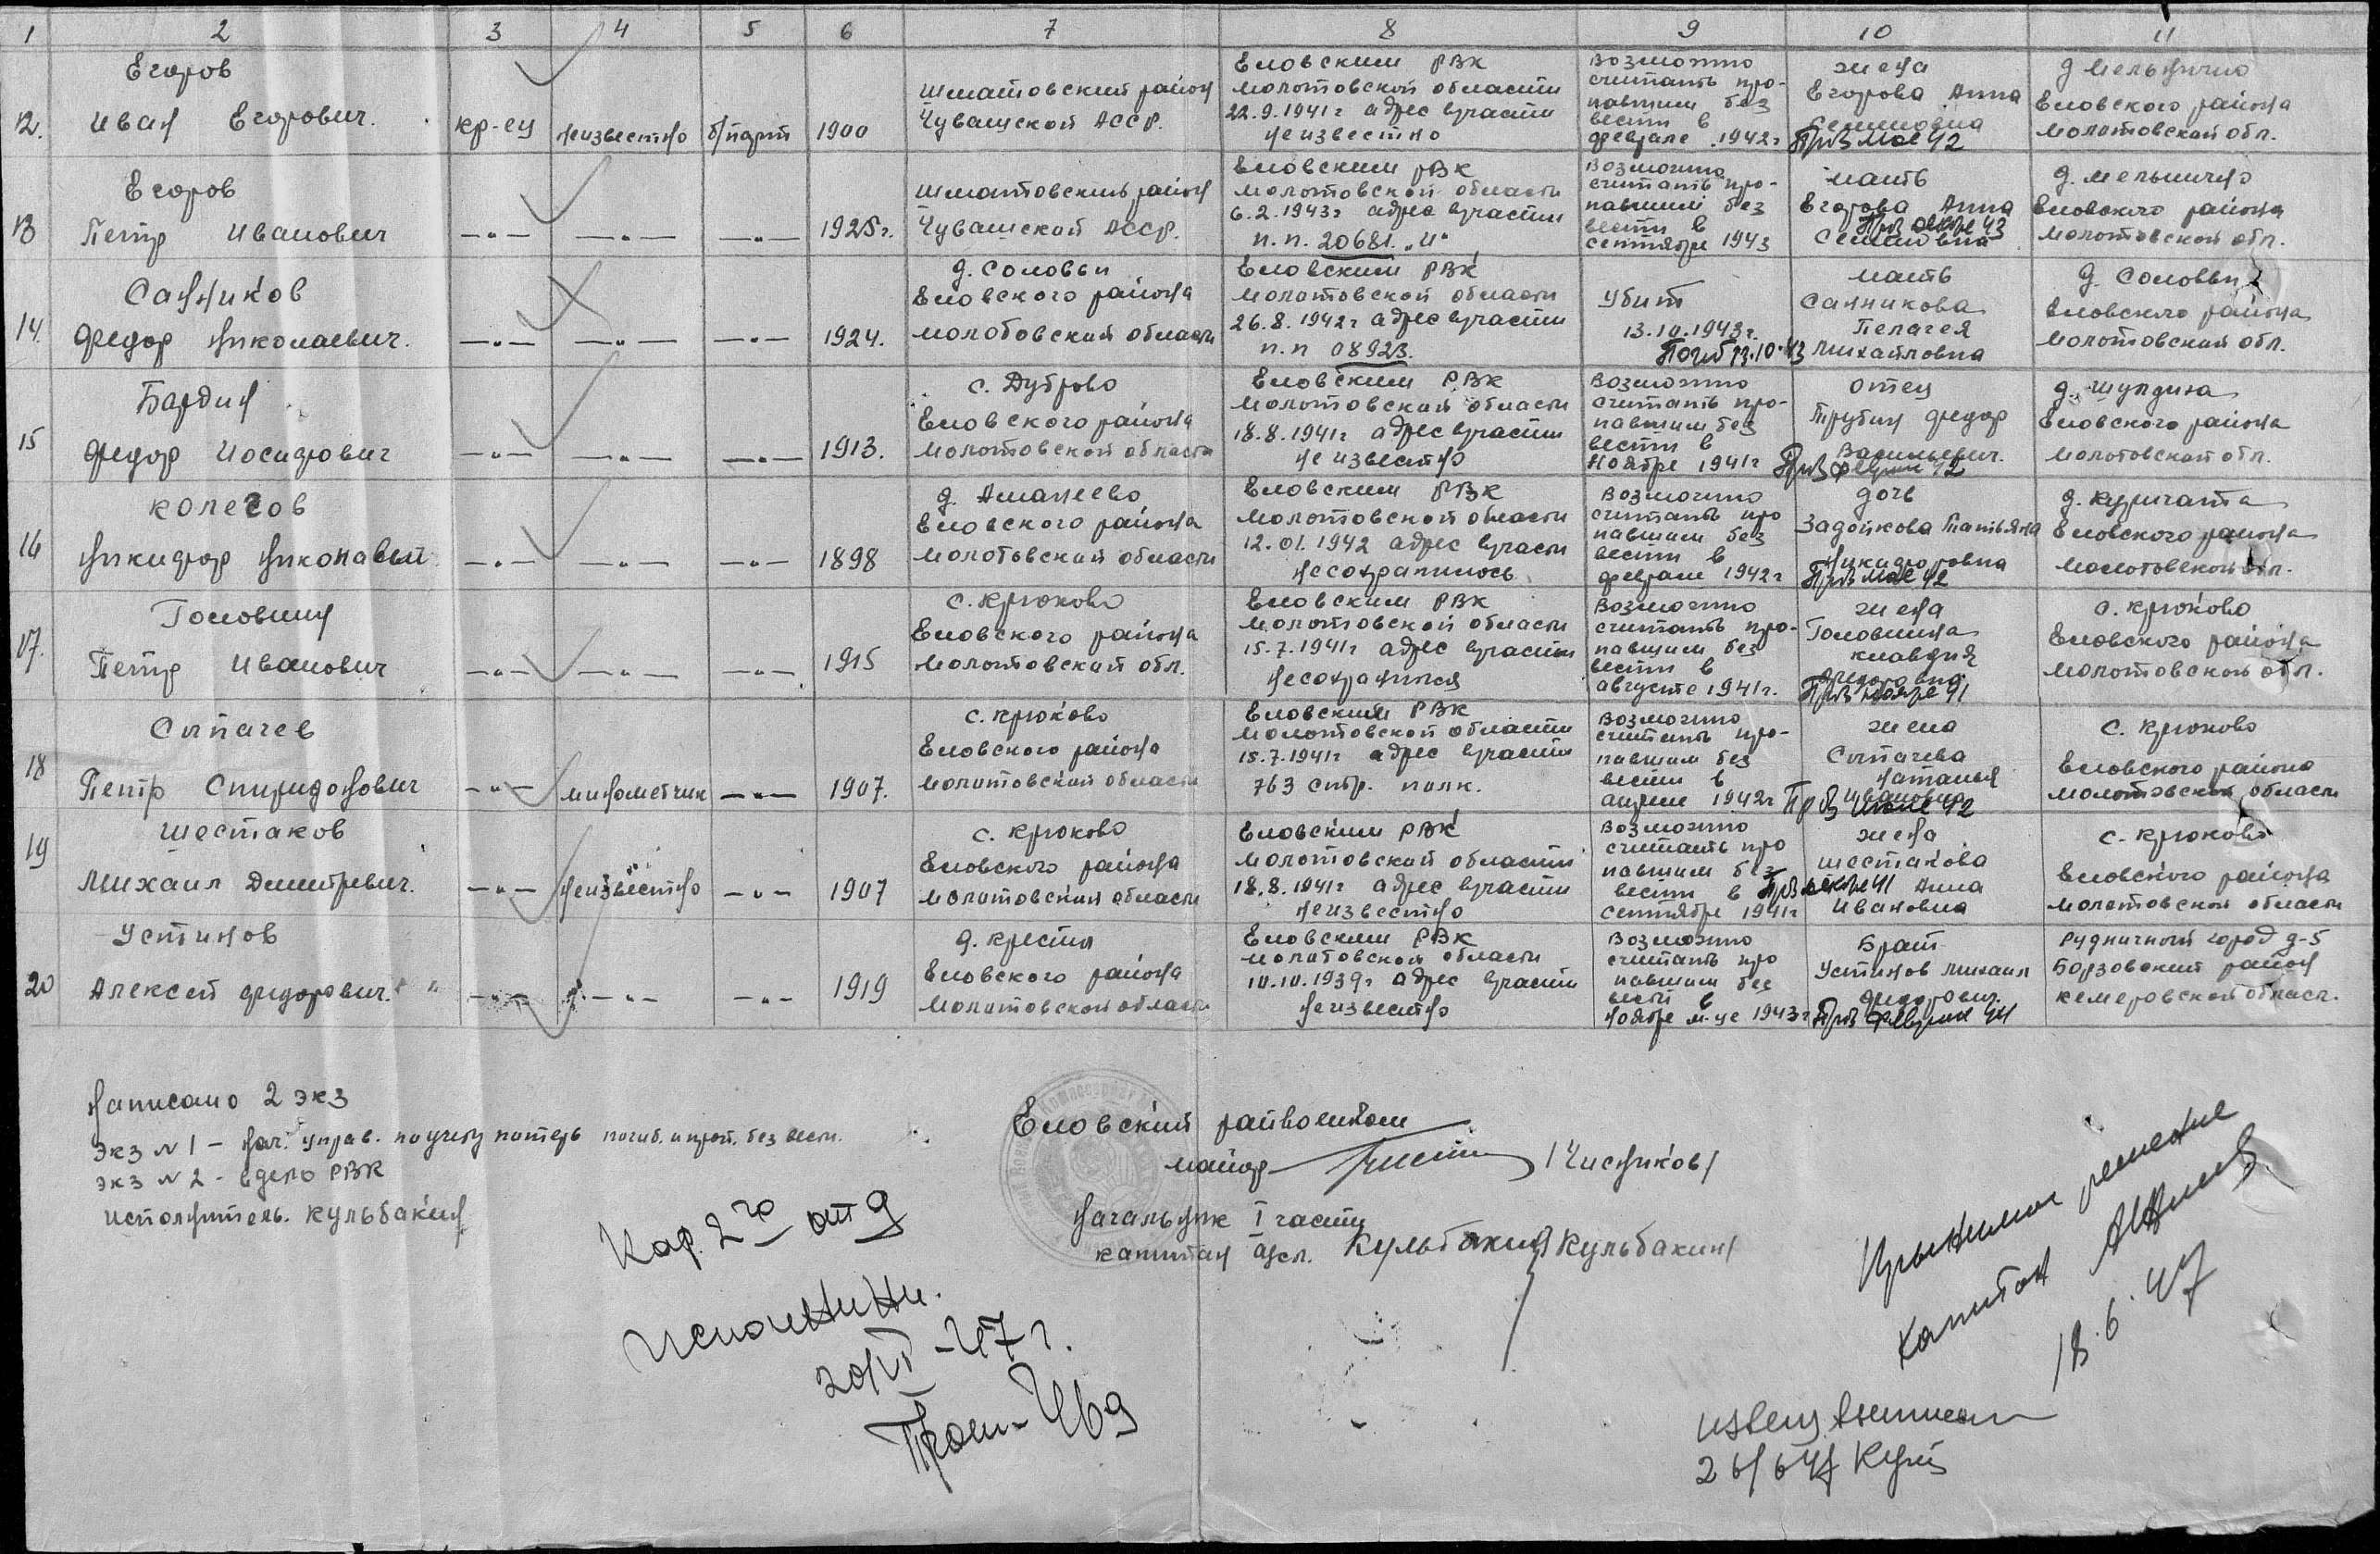 1 2 3 4 5 6 7 8 9 10 11
12. Егоров
Иван Егорович.
кр-ец неизвестно б/парт 1900
Шматовский район
Чувашской АССР.
Еловским РВК
Молотовской области
22.9.1941г адрес вчасти
неизвестно
Возможно
считать про-
павшим без
вести в
феврале 1942г
жена
Егорова Анна
Семеновна
Пр/в мае 42
д Мельнично
Еловского района
Молотовской обл.
13 Егоров
Петр Иванович
—"— —"— —"— 1925г.
Шматовский район
Чувашской АССР.
Еловским РВК
Молотовской области
6.2.1943г адрес вчасти
п.п. 20681 „И"
Возможно
считать про-
павшим без
вести в
сентябре 1943
мать
Егорова Анна
Семеновна
д. Мельнично
Еловского района
Молотовской обл.
14. Санников
Федор Николаевич.
—"— —"— —"— 1924.
д. Соловьи
Еловского района
Молотовской области
Еловским РВК
Молотовской области
26.8.1942г адрес вчасти
п.п 08923.
Убит
13.10.1943г.
Погиб 13.10.43
мать
Санникова
Пелагея
Михайловна
д. Соловьи
Еловского района
Молотовской обл.
15 Бардин
Федор Иосифович
—"— —"— —"— 1913.
с. Дуброво
Еловского района
Молотовской области
Еловским РВК
Молотовской области
18.8.1941г адрес вчасти
неизвестно
Возможно
считать про-
павшим без
вести в
ноябре 1941г
отец
Трубин Федор
Васильевич.
Пр/в феврале 42
д. Шулдиха
Еловского района
Молотовской обл.
16 Колегов
Никифор Николаевич
—"— —"— —"— 1898
д. Аманеево
Еловского района
Молотовской области
Еловским РВК
Молотовской области
12.01.1942 адрес вчасти
несохранилось
Возможно
считать про
павшим без
вести в
феврале 1942г
дочь
Задойкова Татьяна
Никифоровна
Пр/в мае 42
Еловского района
Молотовской обл.
17. Головнин
Петр Иванович
—"— —"— —"— 1915
с. Крюково
Еловского района
Молотовской обл.
Еловским РВК
Молотовской области
15.7.1941г адрес вчасти
несохранился
Возможно
считать про-
павшим без
вести в
августе 1941г.
жена
Головнина
Клавдия
Федоровна
Пр/в ноябре 41
с. Крюково
Еловского района
Молотовской обл.
18 Сыпачев
Петр Спиридонович
—"— минометчик —"— 1907.
с. Крюково
Еловского района
Молотовской области
Еловским РВК
Молотовской области
15.7.1941г адрес вчасти
763 стр. полк.
Возможно
считать про-
павшим без
вести в
апреле 1942г
жена
Сыпачева
Наталья
Ивановна
Пр/в июле 42
с. Крюково
Еловского района
Молотовской области
19 Шестаков
Михаил Дмитревич.
—"— неизвестно —"— 1907
с. Крюково
Еловского района
Молотовской области
Еловским РВК
Молотовской области
18.8.1941г адрес вчасти
неизвестно
Возможно
считать про
павшим без
вести в
сентябре 1941г
жена
Шестакова
Анна
Ивановна
Пр/в декабре 41
с. Крюково
Еловского района
Молотовской области
20 Устинов
Алексей Федорович.
—"— —"— —"— 1919
д. Кресты
Еловского района
Молотовской области
Еловским РВК
Молотовской области
10.10.1939г адрес вчасти
неизвестно
Возможно
считать про
павшим без
вести в
ноябре м-це 1943г
Брат
Устинов Михаил
Федорович.
Пр/в феврале 44
Рудничный город д-5
Борзовский район
Кемеровской област.
Написано 2 экз
Экз №1 — Нач. управ. по учету потерь погиб. и проп. без вести.
Экз №2 - в дело РВК
исполнитель. Кульбакин
Еловский райвоенком
майор /Чистяков/
Начальник I части
капитан адм. Кульбакин /Кульбакин/
Кар. 2го отд
исполнены.
20/VI-47г.
капитан
18.6.47
26/647